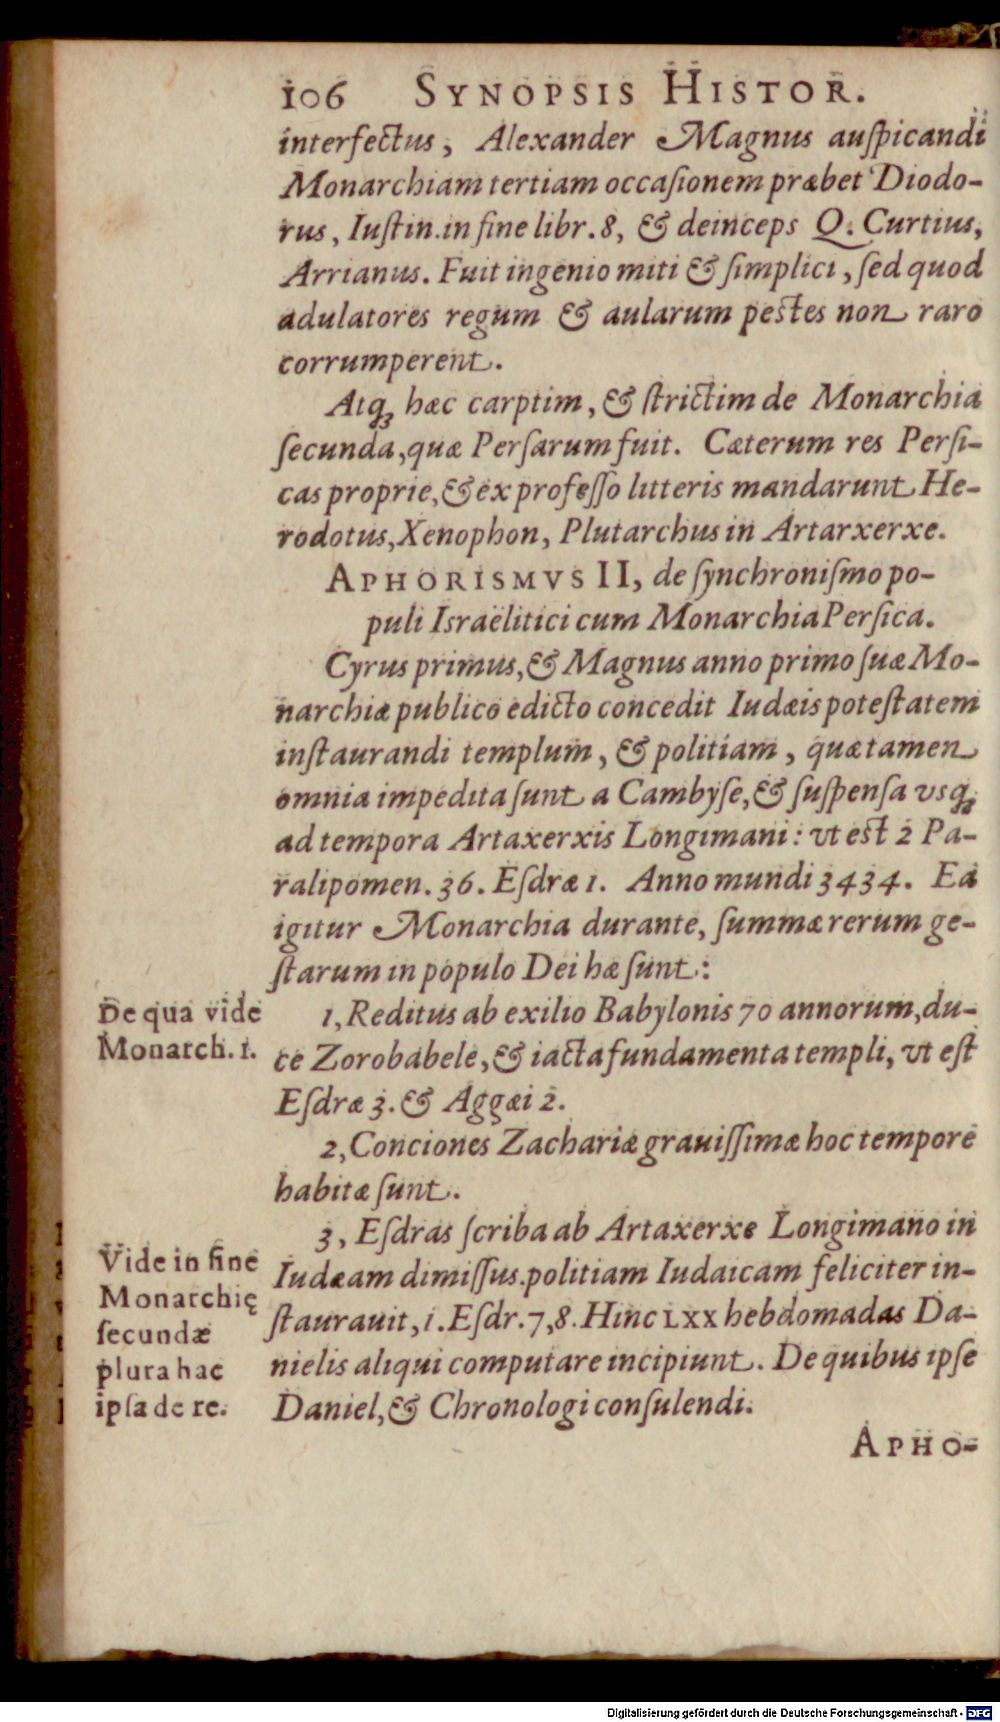 106 SYNOPSIS HISTOR.
interfectus, Alexander Magnus auſpicandi
Monarchiam tertiam occaſionem præbet Diodo-
rus, Iuſtin. in fine libr. 8, & deinceps Q. Curtius,
Arrianus. Fuit ingenio miti & ſimplici, ſed quod
adulatores regum & aularum peſtes non raro
corrumperent.
Atq; hæc carptim, & ſtrictim de Monarchia
ſecunda, quæ Perſarum fuit. Cæterum res Perſi-
cas proprie, & ex profeſſo litteris mandarunt He-
rodotus, Xenophon, Plutarchus in Artarxerxe.
APHORISMVS II, de ſynchroniſmo po-
puli Israëlitici cum Monarchia Perſica.
Cyrus primus, & Magnus anno primo ſuæ Mo-
narchiæ publico edicto concedit Iudæis poteſtatem
inſtaurandi templum, & politiam, quæ tamen
omnia impedita ſunt a Cambyſe, & ſuſpenſa vsq;
ad tempora Artaxerxis Longimani: vt eſt 2 Pa-
ralipomen. 36. Eſdræ 1. Anno mundi 3434. Ea
igitur Monarchia durante, ſummæ rerum ge-
ſtarum in populo Dei hæ ſunt:
De qua vide
Monarch. 1.
1, Reditus ab exilio Babylonis 70 annorum, du-
ce Zorobabele, & iacta fundamenta templi, vt eſt
Eſdræ 3. & Aggæi 2.
2, Conciones Zachariæ grauiſſimæ hoc tempore
habitæ ſunt.
3, Eſdras ſcriba ab Artaxerxe Longimano in
Iudæam dimiſſus. politiam Iudaicam feliciter in-
ſtaurauit, 1. Eſdr. 7, 8. Hinc LXX hebdomadas Da-
nielis aliqui computare incipiunt. De quibus ipſe
Daniel, & Chronologi conſulendi.
Vide in fine
Monarchię
ſecundæ
plura hac
ipſa de re.
APHO-
Digitalisierung gefördert durch die Deutsche Forschungsgemeinschaft - DFG